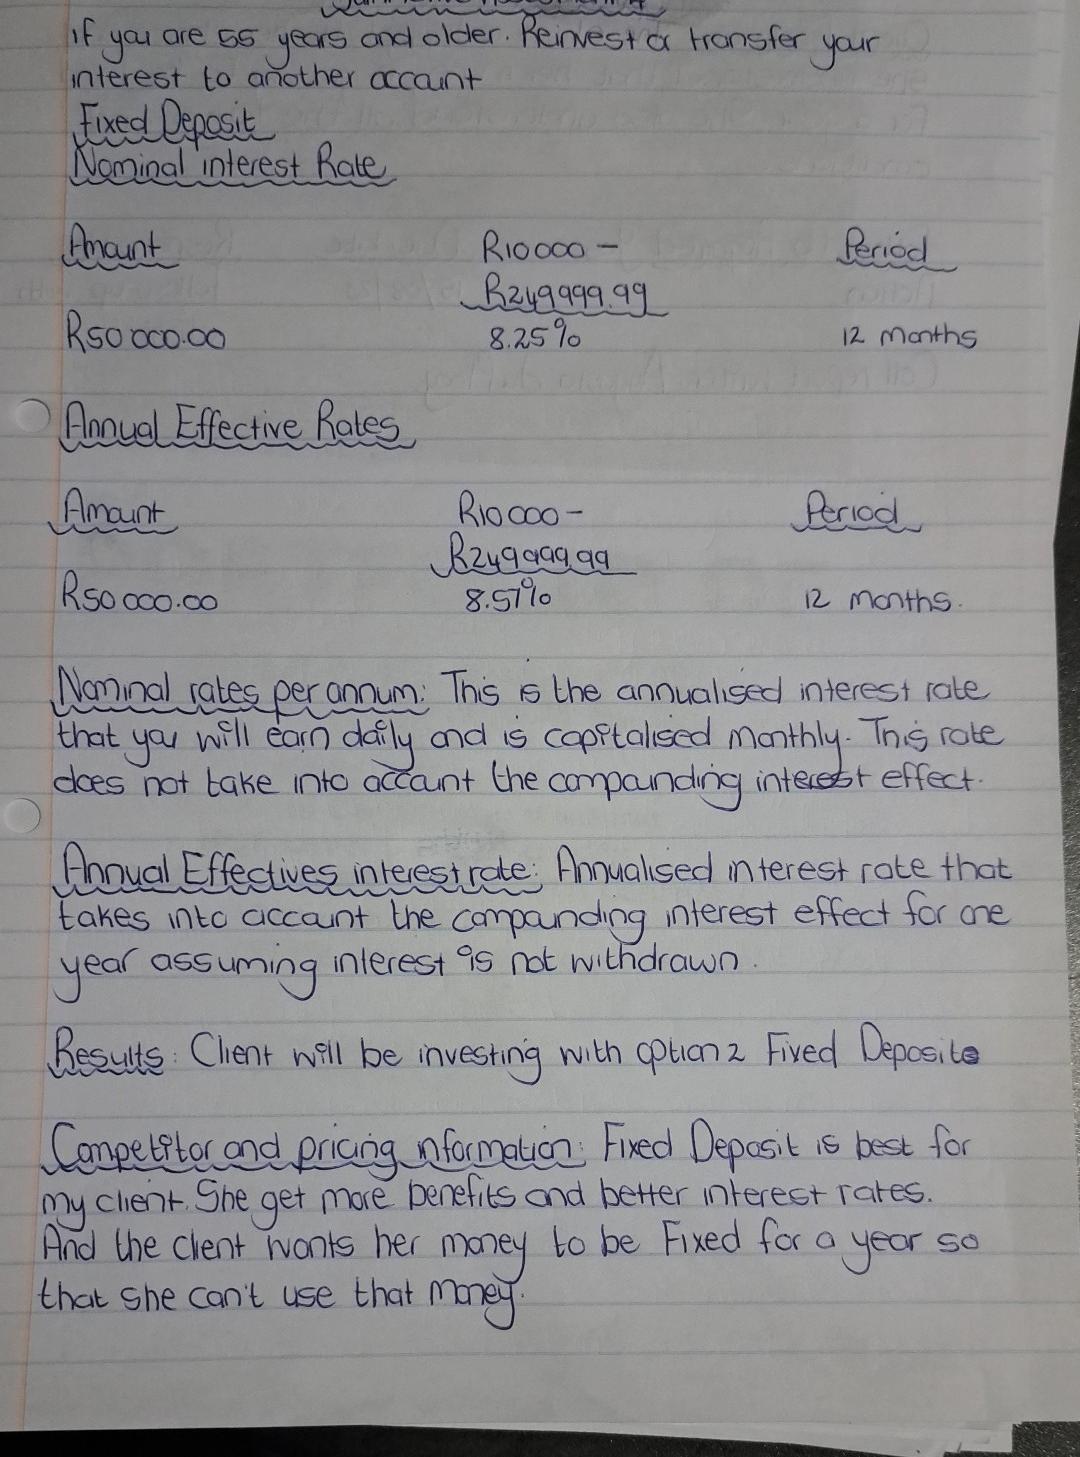 If you are 55 years and older. Reinvest or transfer your
interest to another account
Fixed Deposit
Nominal interest Rate
Amount R10000 - Period
R249999.99
R50000.00 8.25% 12 Months
Annual Effective Rates
Amount R10000 - Period
R249999.99
R50000.00 8.57% 12 months.
Nominal rates per annum: This is the annualised interest rate
that you will earn daily and is capitalised monthly. This rate
does not take into account the compounding interest effect.
Annual Effectives interest rate: Annualised interest rate that
takes into account the compounding interest effect for one
year assuming interest is not withdrawn.
Results: Client will be investing with option 2 Fixed Deposits
Competitor and pricing information: Fixed Deposit is best for
my client. She get more benefits and better interest rates.
And the client wants her money to be Fixed for a year so
that she can't use that money.